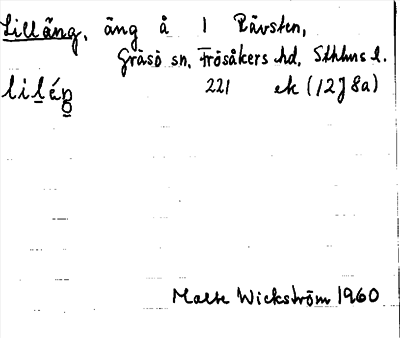 Lilläng, äng å 1 Rävsten,
Gräsö sn, Frösåkers hd, Sthlms l.
liláŋ 221 ek (12J8a)
Malte Wickström 1960